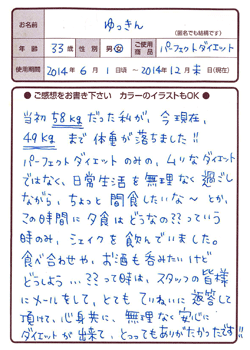 お名前 ゆっきん
(匿名でも結構です)
年齢 33歳 性別 男・女 ご使用商品 パーフェクトダイエット
使用期間 2014年6月1日頃 ～ 2014年12月末日(現在)
● ご感想をお書き下さい カラーのイラストもOK ●
当初58kgだった私が、今現在、
49kgまで体重が落ちました!!
パーフェクトダイエットのみの、ムリなダイエット
ではなく、日常生活を無理なく過ごし
ながら、ちょっと間食したいな～とか、
この時間に夕食はどうなの??っていう
時のみ、シェイクを飲んでいました。
食べ合わせや、お酒も呑みたいけど
どうしよう…??って時は、スタッフの皆様
にメールをして、とてもていねいに返答して
頂けて、心身共に、無理なく安心に
ダイエットが出来て、とってもありがたかったです!!